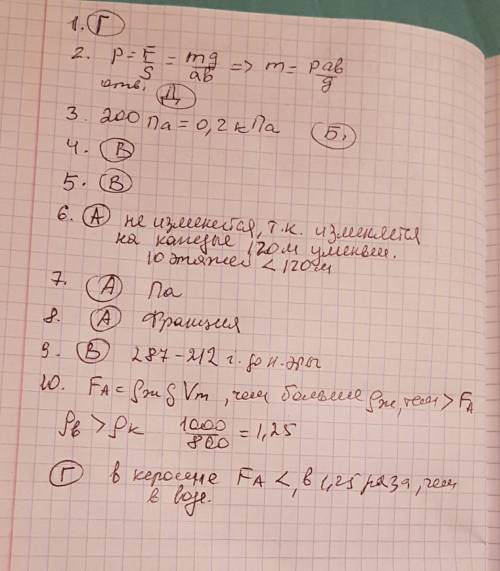 1. Г
2. P = F/S = mg/ab => m = Pab/g
отв. Д
3. 200 Па = 0,2 кПа Б.
4. В
5. В
6. А не изменяется, т.к. изменяется
на каждые 120м уменьш.
10 этажей < 120м
7. А Па
8. А Франция
9. В 287-212 г. до н. эры
10. FA = ρж g Vт, чем больше ρж, тем > FA
ρв > ρк 1000/800 = 1,25
Г в керосине FA <, в 1,25 раза, чем
в воде.